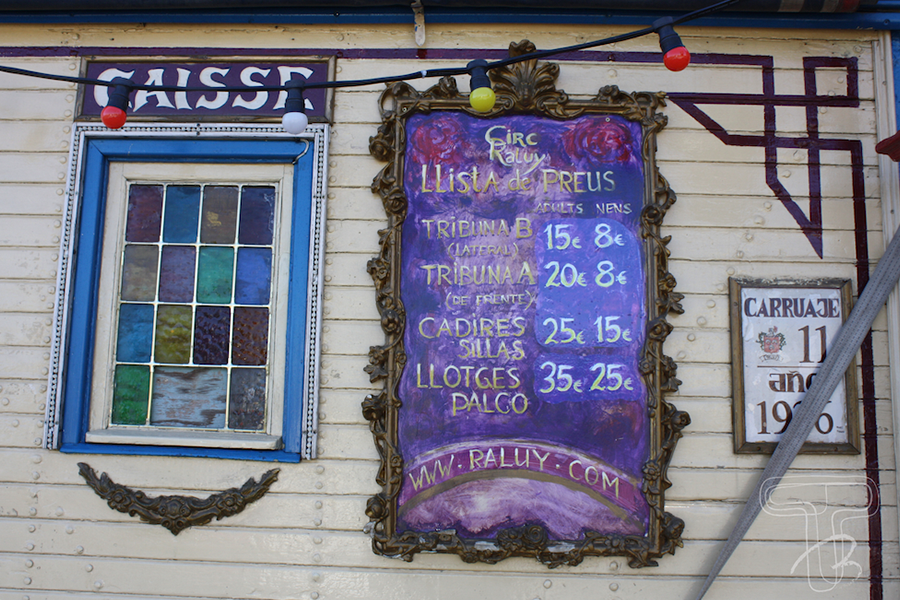 CAISSE
CIRC
RALUY
LLISTA de PREUS
ADULTS NENS
TRIBUNA B 15€ 8€
(LATERAL)
TRIBUNA A 20€ 8€
(DE FRENTE)
CADIRES 25€ 15€
SILLAS
LLOTGES 35€ 25€
PALCO
WWW.RALUY.COM
CARRUAJE
11
año